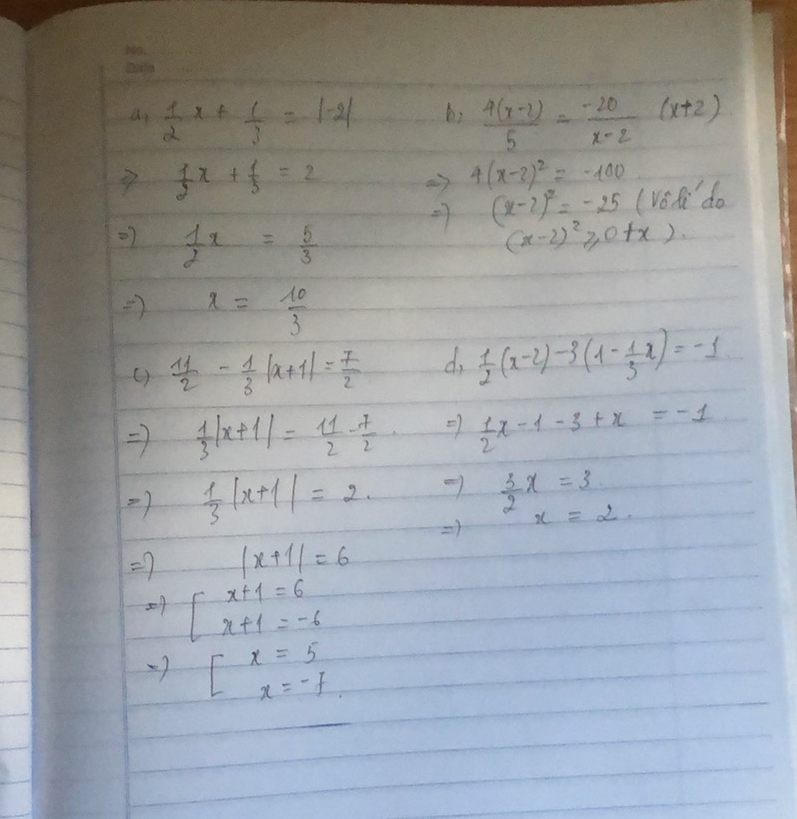 No.
Date
a, 1/2 x + 1/3 = |-2|
=> 1/2 x + 1/3 = 2
=> 1/2 x = 5/3
=> x = 10/3
b, 4(x-2)/5 = -20/(x-2) (x≠2)
=> 4(x-2)² = -100
=> (x-2)² = -25 (Vô lí do
(x-2)² ≥ 0 ∀x).
c, 11/2 - 1/3 |x+1| = 7/2
=> 1/3 |x+1| = 11/2 - 7/2.
=> 1/3 |x+1| = 2.
=> |x+1| = 6
=> [ x+1 = 6
x+1 = -6
=> [ x = 5
x = -7.
d, 1/2 (x-2) - 3(1 - 1/3 x) = -1.
=> 1/2 x - 1 - 3 + x = -1
=> 3/2 x = 3.
=> x = 2.